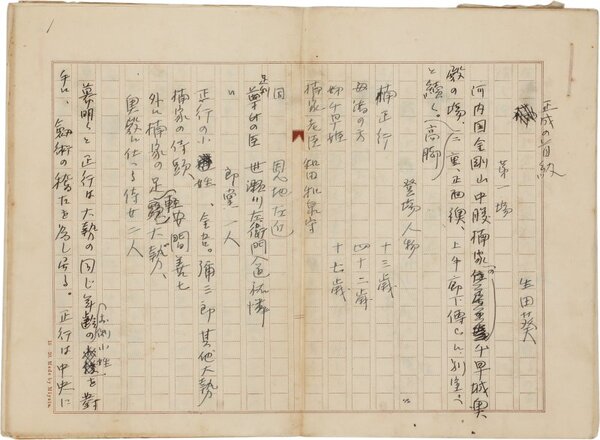 正成の首級
生田葵
第一場
河内国金剛山中腹楠家の千早城奥
殿の場。二重、正面襖、上手廊下傳ひに別室へ
と續く。(高脚)
登場人物
楠正行 十三歳
母滝の方 四十二歳
姉千早姫 十七歳
楠家老臣和田和泉守
同 恩地左近
足利尊氏の臣 世瀬川左衛門入道祐憐
〃 郎黨一人
正行の小姓、全吾。彌三郎其他大勢
楠家の侍頭、安間善七
外に楠家の足軽大勢、
奥殿に仕へる侍女二人
幕明くと正行は大勢の同じ年齢の小姓を對
手に、劔術の稽古を為し居る。正行は中央に